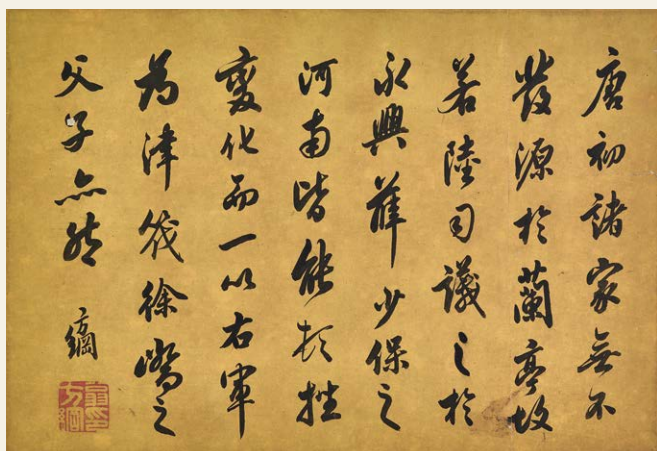 唐初諸家無不
發源於蘭亭故
若陸司議之於
永興薛少保之
河南皆能頓挫
變化而一以右軍
為津筏徐嶠之
父子亦然
方綱